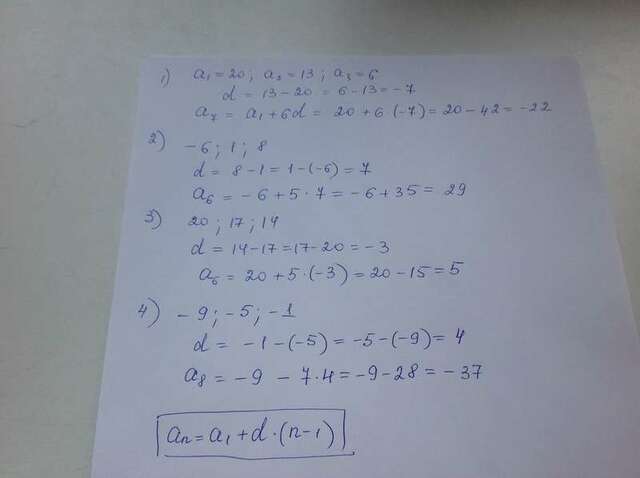 1) a₁ = 20 ; a₂ = 13 ; a₃ = 6
d = 13 - 20 = 6 - 13 = -7
a₇ = a₁ + 6d = 20 + 6 · (-7) = 20 - 42 = -22
2) -6 ; 1 ; 8
d = 8 - 1 = 1 - (-6) = 7
a₆ = -6 + 5 · 7 = -6 + 35 = 29
3) 20 ; 17 ; 14
d = 14 - 17 = 17 - 20 = -3
a₆ = 20 + 5 · (-3) = 20 - 15 = 5
4) -9 ; -5 ; -1
d = -1 - (-5) = -5 - (-9) = 4
a₈ = -9 - 7 · 4 = -9 - 28 = -37
aₙ = a₁ + d · (n-1)